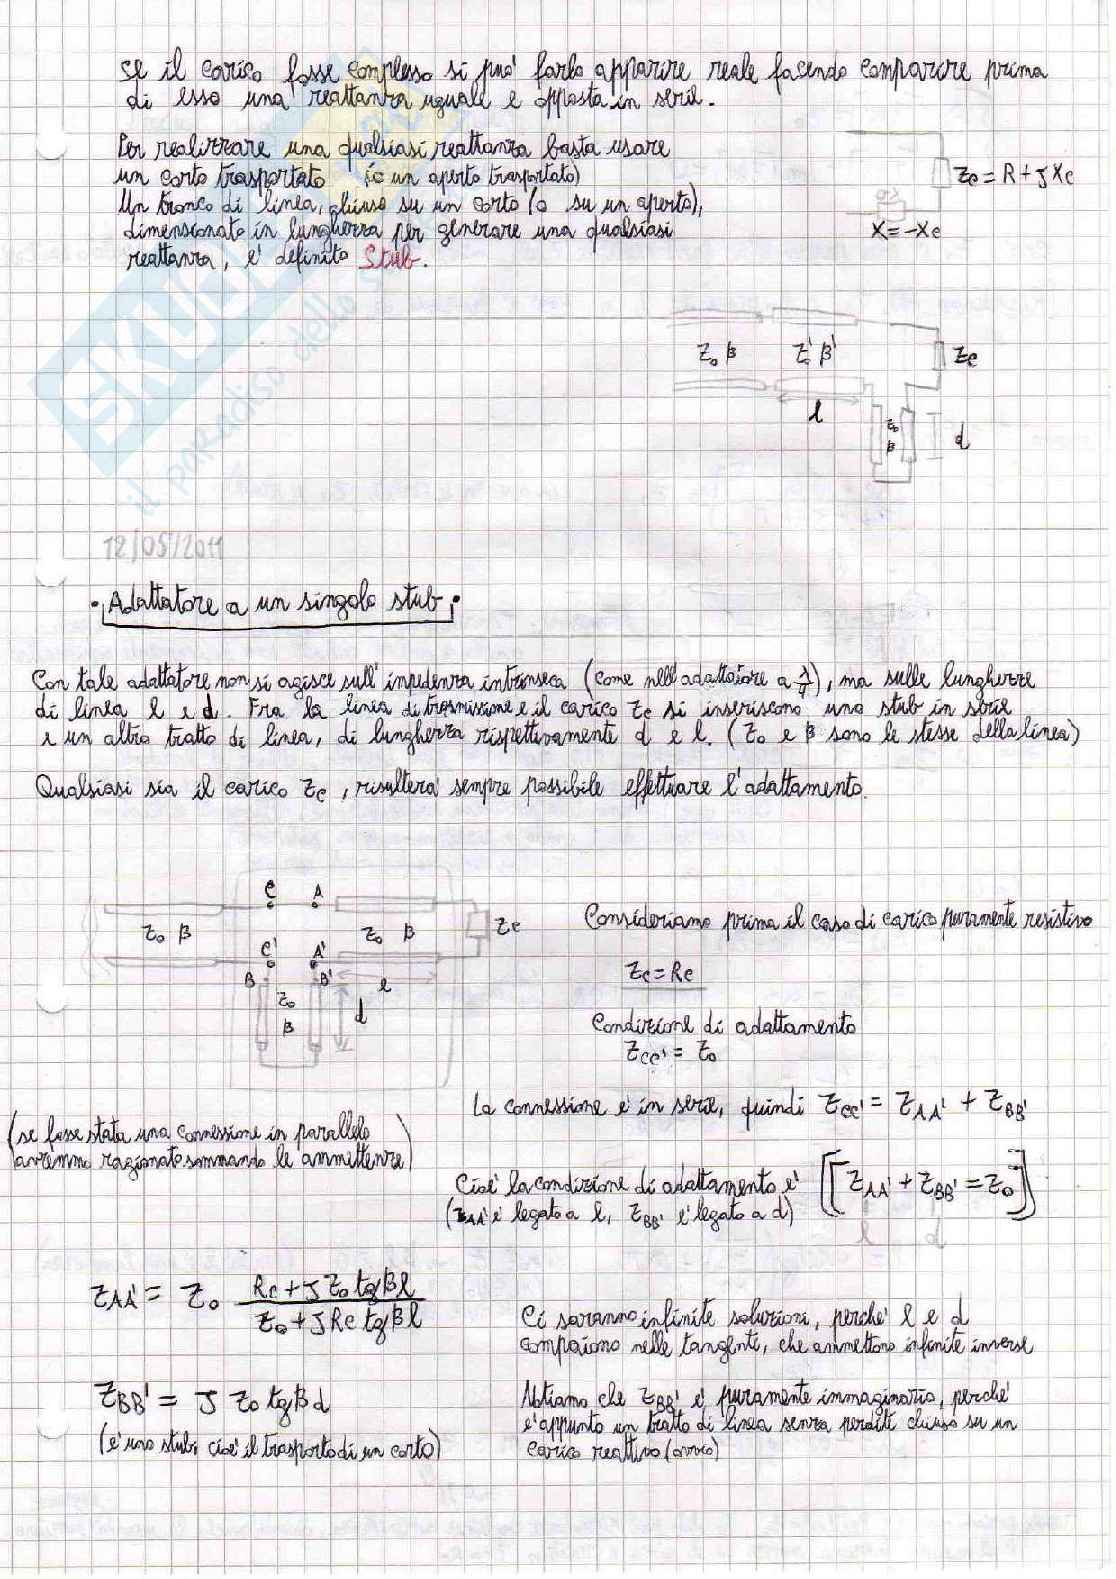 Se il carico fosse complesso si può farlo apparire reale facendo comparire prima
di esso una reattanza uguale e opposta in serie.
Per realizzare una qualsiasi reattanza basta usare
un corto trasportato (o un aperto trasportato)
Un tronco di linea, chiuso su un corto (o su un aperto),
dimensionato in lunghezza per generare una qualsiasi
reattanza, e' definito Stub.
Zc = R + J Xc
X = -Xc
Z₀ β
Z₀' β'
Zc
l
Z₀
β
d
SKUOLA
il paradiso dello
12/05/2011
• Adattatore a un singolo stub •
Con tale adattatore non si agisce sull'impedenza intrinseca (come nell'adattatore a λ/4), ma sulle lunghezze
di linea l e d. Fra la linea di trasmissione e il carico Zc si inseriscono uno stub in serie
e un altro tratto di linea, di lunghezza rispettivamente d e l. (Z₀ e β sono le stesse della linea)
Qualsiasi sia il carico Zc, risulterà sempre possibile effettuare l'adattamento.
C A
Z₀ β
Z₀ β
Zc
C' A'
B B'
l
Z₀
β
d
Consideriamo prima il caso di carico puramente resistivo
Zc = Rc
Condizione di adattamento
Zcc' = Z₀
La connessione e' in serie, quindi Zcc' = ZAA' + ZBB'
(se fosse stata una connessione in parallelo
avremmo ragionato sommando le ammettenze)
Cioe' la condizione di adattamento e' [ZAA' + ZBB' = Z₀]
(ZAA' e' legato a l, ZBB' e' legato a d)
l d
ZAA' = Z₀ (Rc + J Z₀ tgβl) / (Z₀ + J Rc tgβl)
Ci saranno infinite soluzioni, perche' l e d
compaiono nelle tangenti, che ammettono infinite inverse
ZBB' = J Z₀ tgβd
(e' uno stub, cioe' il trasporto di un corto)
Notiamo che ZBB' e' puramente immaginaria, perche'
e' appunto un tratto di linea senza perdite chiuso su un
carico reattivo (ovvio)